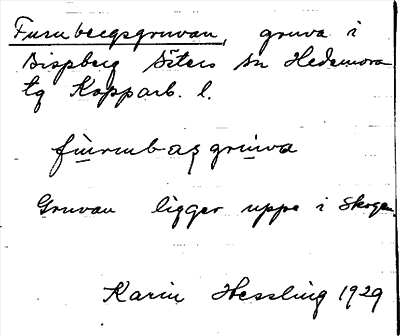 Furubergsgruvan, gruva i
Bispberg Säters sn Hedemora
tg Kopparb. l.
fùrubaggrùva
Gruvan ligger uppe i skogen.
Karin Hessling 1929